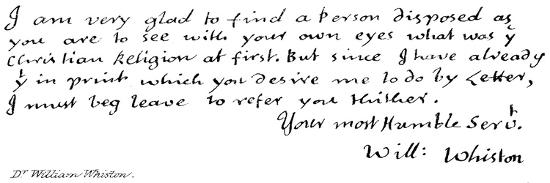 I am very glad to find a Person disposed as
you are to see with your own eyes what was yͤ
Christian Religion at first. But since I have already
yͭ in print which you desire me to do by Letter,
I must beg leave to refer you thither.
Your most Humble Servᵗ.
Will: Whiston
Dʳ William Whiston.